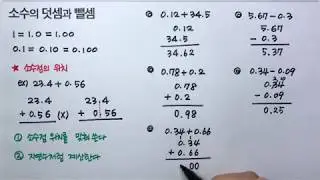 소수의 덧셈과 뺄셈
1 = 1.0 = 1.00
0.1 = 0.10 = 0.100
★ 소수점의 위치
ex) 23.4 + 0.56
23.4
+ 0.56 (X)
23.4
+ 0.56
① 소수점 위치를 맞춰 쓴다
② 자연수처럼 계산한다
0.12 + 34.5
0.12
34.5
34.62
0.78 + 0.2
0.78
+ 0.2
0.98
0.34 + 0.66
0.34
+ 0.66
00
5.67 - 0.3
5.67
- 0.3
5.37
0.34 - 0.09
0.34
- 0.09
0.25